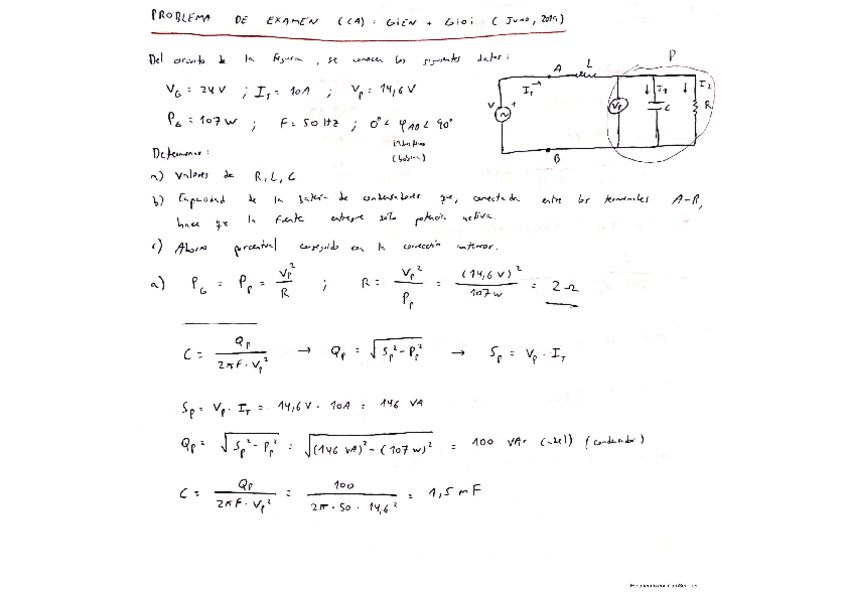 PROBLEMA DE EXAMEN (CA): GIEN + GIOI (JUNIO, 2019)
Del circuito de la figura, se conocen los siguientes datos:
VG = 24V ; IT = 10A ; Vp = 14,6 V
PG = 107 W ; F = 50 Hz ; 0° < φAB < 90°
inductivo
(bobina)
A L P
IT → I1 I2
V + Vp C R
B
Determinar:
a) Valores de R, L, C
b) Capacidad de la batería de condensadores que, conectada entre los terminales A-B,
hace que la fuente entregue sólo potencia activa.
c) Ahorro porcentual conseguido con la corrección anterior.
a) PG = Pp = Vp² / R ; R = Vp² / Pp = (14,6 V)² / 107 W = 2 Ω
C = Qp / 2πF·Vp² → Qp = √(Sp² - Pp²) → Sp = Vp · IT
Sp = Vp · IT = 14,6 V · 10A = 146 VA
Qp = √(Sp² - Pp²) = √((146 VA)² - (107 W)²) = 100 VAr (condensador)
C = Qp / 2πF·Vp² = 100 / 2π·50·14,6² = 1,5 mF